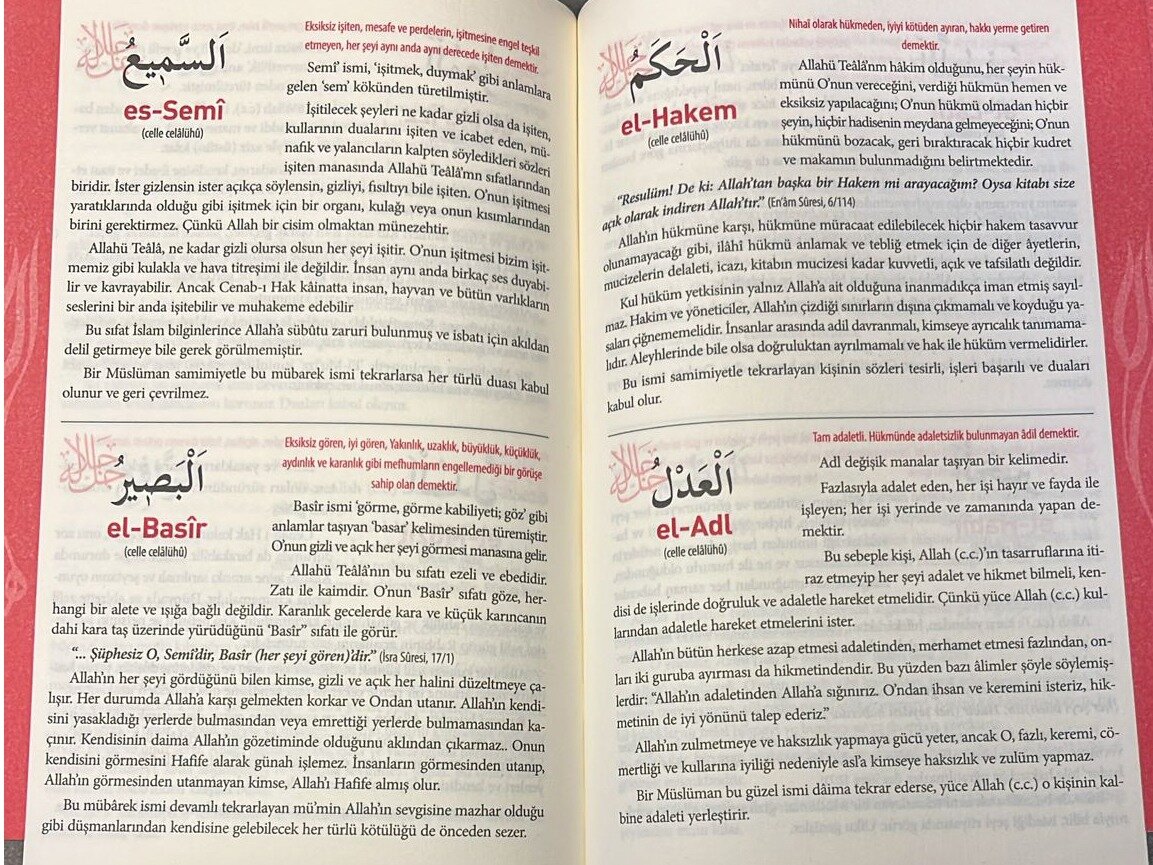 Eksiksiz işiten, mesafe ve perdelerin, işitmesine engel teşkil
etmeyen, her şeyi aynı anda aynı derecede işiten demektir.
اَلسَّمِيعُ
es-Semî
(celle celâlühû)
Semî‘ ismi, ‘işitmek, duymak’ gibi anlamlara
gelen ‘sem’ kökünden türetilmiştir.
İşitilecek şeyleri ne kadar gizli olsa da işiten,
kullarının dualarını işiten ve icabet eden, mü-
nafık ve yalancıların kalpten söyledikleri sözleri
işiten manasında Allahü Teâlâ’nın sıfatlarından
biridir. İster gizlensin ister açıkça söylensin, gizliyi, fısıltıyı bile işiten. O’nun işitmesi
yaratıklarında olduğu gibi işitmek için bir organı, kulağı veya onun kısımlarından
birini gerektirmez. Çünkü Allah bir cisim olmaktan münezehtir.
Allahü Teâlâ, ne kadar gizli olursa olsun her şeyi işitir. O’nun işitmesi bizim işit-
memiz gibi kulakla ve hava titreşimi ile değildir. İnsan aynı anda birkaç ses duyabi-
lir ve kavrayabilir. Ancak Cenab-ı Hak kâinatta insan, hayvan ve bütün varlıkların
seslerini bir anda işitebilir ve muhakeme edebilir
Bu sıfat İslam bilginlerince Allah’a sübûtu zaruri bulunmuş ve isbatı için akıldan
delil getirmeye bile gerek görülmemiştir.
Bir Müslüman samimiyetle bu mübarek ismi tekrarlarsa her türlü duası kabul
olunur ve geri çevrilmez.
Eksiksiz gören, iyi gören, Yakınlık, uzaklık, büyüklük, küçüklük,
aydınlık ve karanlık gibi mefhumların engellemediği bir görüşe
sahip olan demektir.
اَلْبَصِيرُ
el-Basîr
(celle celâlühû)
Basîr ismi ‘görme, görme kabiliyeti; göz’ gibi
anlamlar taşıyan ‘basar’ kelimesinden türemiştir.
O’nun gizli ve açık her şeyi görmesi manasına gelir.
Allahü Teâlâ’nın bu sıfatı ezeli ve ebedidir.
Zatı ile kaimdir. O’nun ‘Basîr’ sıfatı göze, her-
hangi bir alete ve ışığa bağlı değildir. Karanlık gecelerde kara ve küçük karıncanın
dahi kara taş üzerinde yürüdüğünü ‘Basîr” sıfatı ile görür.
“... Şüphesiz O, Semî’dir, Basîr (her şeyi gören)’dir.” (İsra Sûresi, 17/1)
Allah’ın her şeyi gördüğünü bilen kimse, gizli ve açık her halini düzeltmeye ça-
lışır. Her durumda Allah’a karşı gelmekten korkar ve Ondan utanır. Allah’ın kendi-
sini yasakladığı yerlerde bulmasından veya emrettiği yerlerde bulmamasından ka-
çınır. Kendisinin daima Allah’ın gözetiminde olduğunu aklından çıkarmaz.. Onun
kendisini görmesini Hafife alarak günah işlemez. İnsanların görmesinden utanıp,
Allah’ın görmesinden utanmayan kimse, Allah’ı Hafife almış olur.
Bu mübârek ismi devamlı tekrarlayan mü’min Allah’ın sevgisine mazhar olduğu
gibi düşmanlarından kendisine gelebilecek her türlü kötülüğü de önceden sezer.
Nihaî olarak hükmeden, iyiyi kötüden ayıran, hakkı yerme getiren
demektir.
اَلْحَكَمُ
el-Hakem
(celle celâlühû)
Allahü Teâlâ’nm hâkim olduğunu, her şeyin hük-
münü O’nun vereceğini, verdiği hükmün hemen ve
eksiksiz yapılacağını; O’nun hükmü olmadan hiçbir
şeyin, hiçbir hadisenin meydana gelmeyeceğini; O’nun
hükmünü bozacak, geri bıraktıracak hiçbir kudret
ve makamın bulunmadığını belirtmektedir.
“Resulüm! De ki: Allah’tan başka bir Hakem mi arayacağım? Oysa kitabı size
açık olarak indiren Allah’tır.” (En’âm Sûresi, 6/114)
Allah’ın hükmüne karşı, hükmüne müracaat edilebilecek hiçbir hakem tasavvur
olunamayacağı gibi, ilâhi hükmü anlamak ve tebliğ etmek için de diğer âyetlerin,
mucizelerin delaleti, icazı, kitabın mucizesi kadar kuvvetli, açık ve tafsilatlı değildir.
Kul hüküm yetkisinin yalnız Allah’a ait olduğuna inanmadıkça iman etmiş sayıl-
maz. Hakim ve yöneticiler, Allah’ın çizdiği sınırların dışına çıkmamalı ve koyduğu ya-
saları çiğnememelidir. İnsanlar arasında adil davranmalı, kimseye ayrıcalık tanımama-
lıdır. Aleyhlerinde bile olsa doğruluktan ayrılmamalı ve hak ile hüküm vermelidirler.
Bu ismi samimiyetle tekrarlayan kişinin sözleri tesirli, işleri başarılı ve duaları
kabul olur.
Tam adaletli. Hükmünde adaletsizlik bulunmayan âdil demektir.
اَلْعَدْلُ
el-Adl
(celle celâlühû)
Adl değişik manalar taşıyan bir kelimedir.
Fazlasıyla adalet eden, her işi hayır ve fayda ile
işleyen; her işi yerinde ve zamanında yapan de-
mektir.
Bu sebeple kişi, Allah (c.c.)’ın tasarruflarına iti-
raz etmeyip her şeyi adalet ve hikmet bilmeli, ken-
disi de işlerinde doğruluk ve adaletle hareket etmelidir. Çünkü yüce Allah (c.c.) kul-
larından adaletle hareket etmelerini ister.
Allah’ın bütün herkese azap etmesi adaletinden, merhamet etmesi fazlından, on-
ları iki guruba ayırması da hikmetindendir. Bu yüzden bazı âlimler şöyle söylemiş-
lerdir: “Allah’ın adaletinden Allah’a sığınırız. O’ndan ihsan ve keremini isteriz, hik-
metinin de iyi yönünü talep ederiz.”
Allah’ın zulmetmeye ve haksızlık yapmaya gücü yeter, ancak O, fazlı, keremi, cö-
mertliği ve kullarına iyiliği nedeniyle asl’a kimseye haksızlık ve zulüm yapmaz.
Bir Müslüman bu güzel ismi dâima tekrar ederse, yüce Allah (c.c.) o kişinin kal-
bine adaleti yerleştirir.